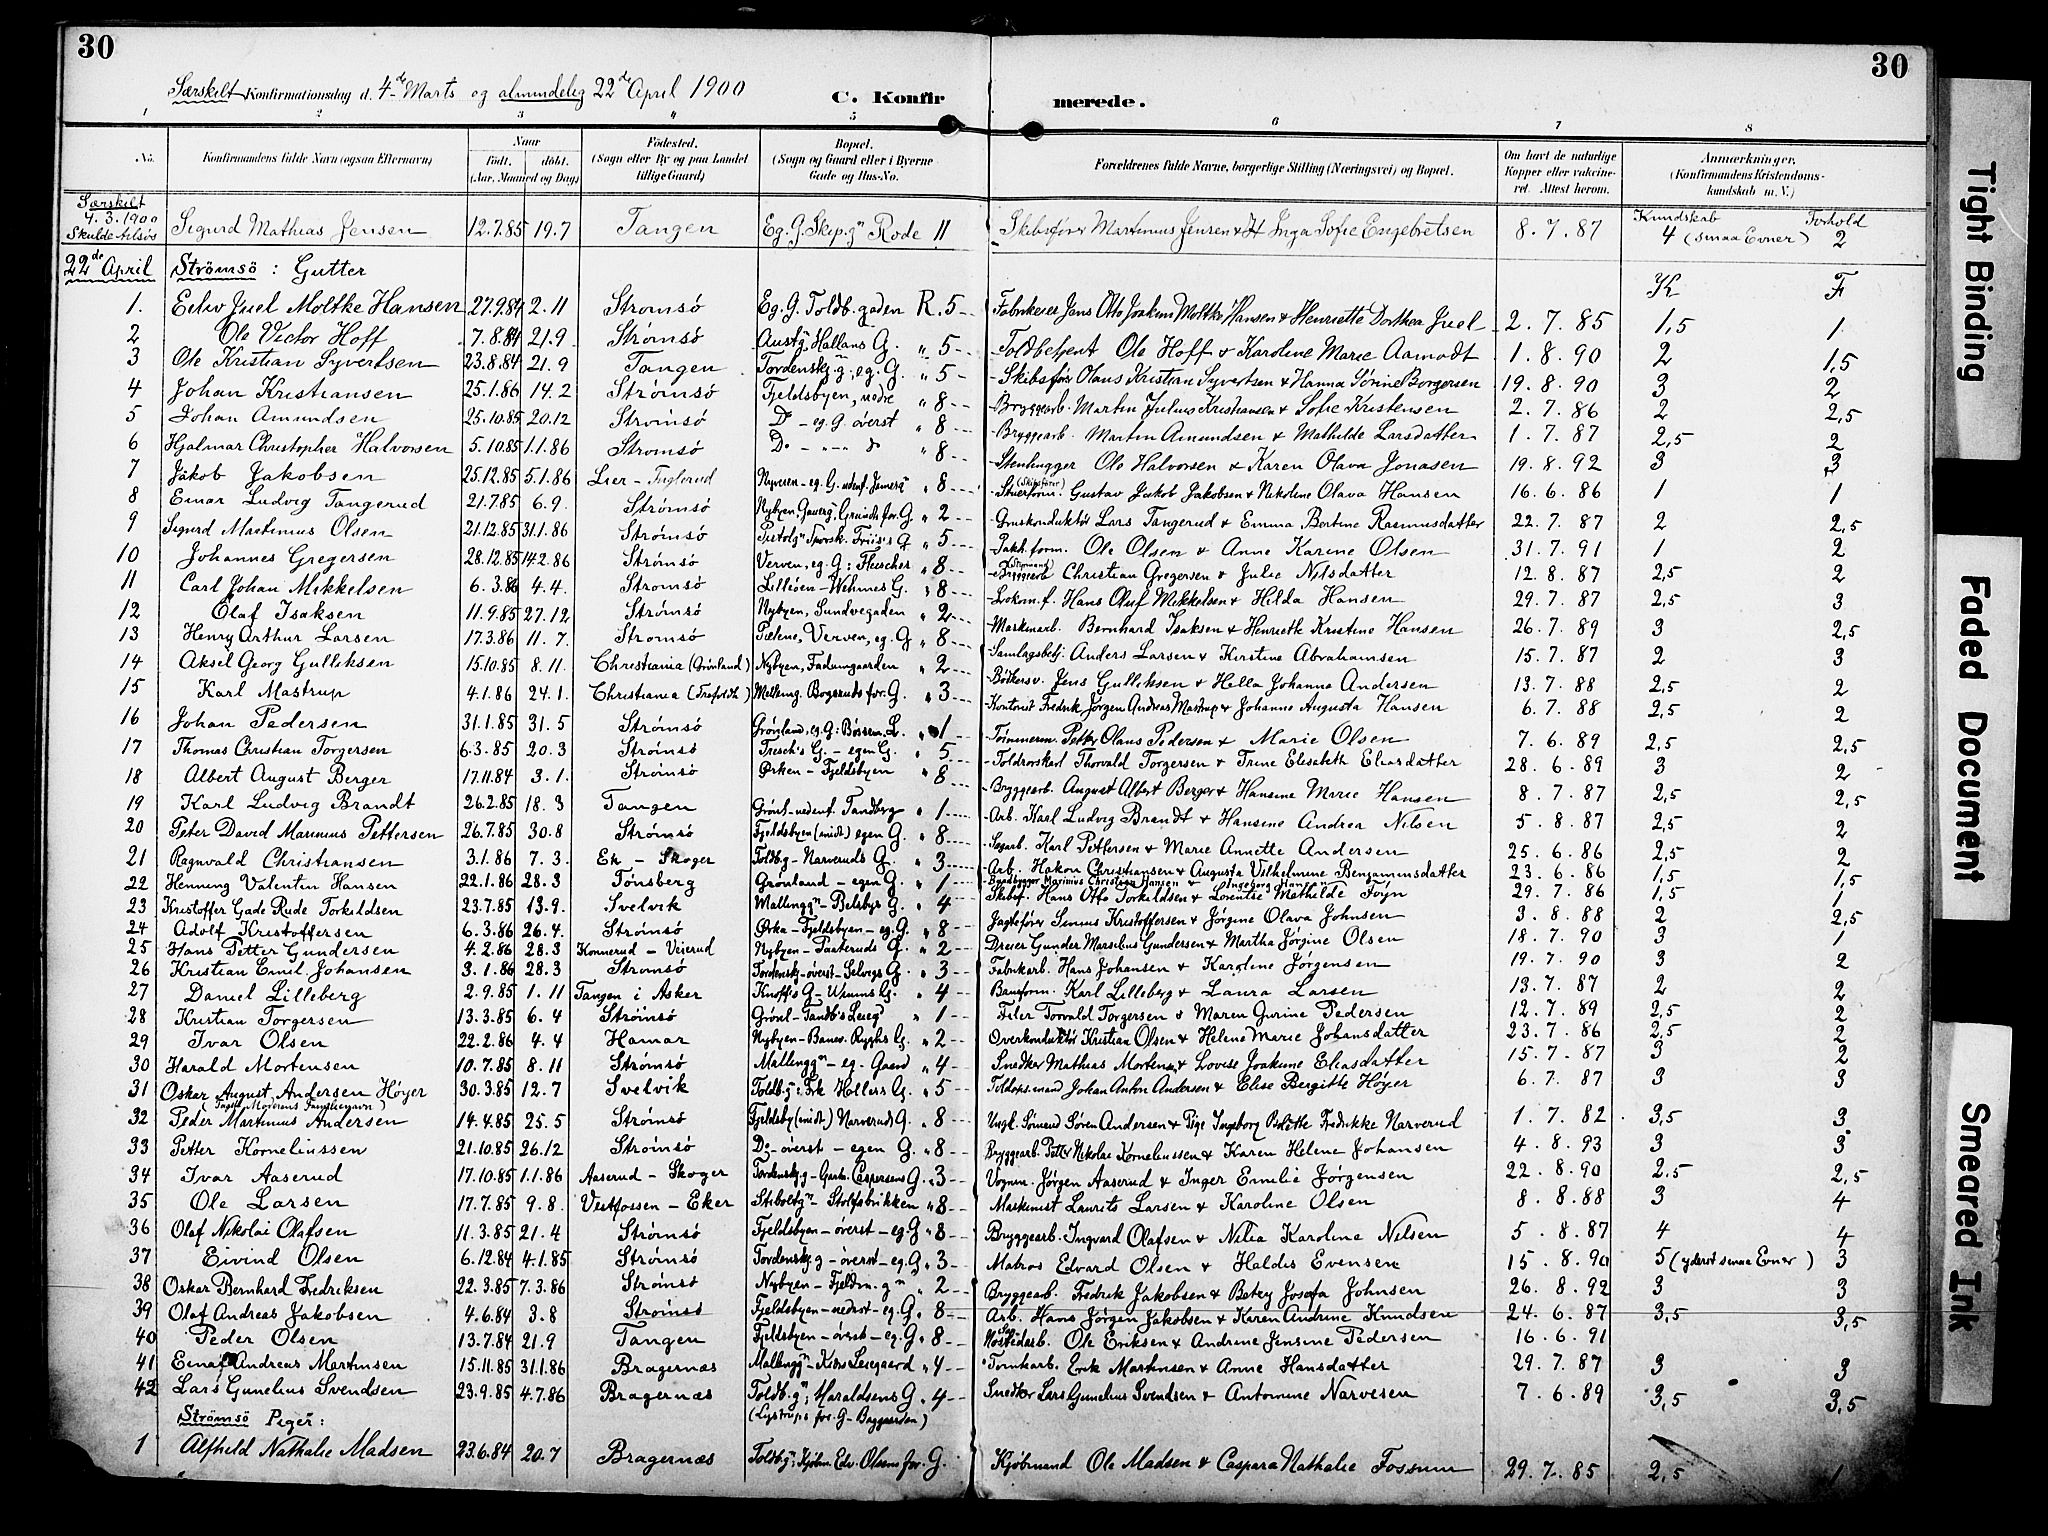 30
30
Særskilt Konfirmationsdag d. 4de Marts og almindelig 22de April 1900
C. Konfirmerede.
1 2 3 4 5 6 7 8
No. Konfirmandens fulde Navn (ogsaa Efternavn) Naar født. døbt. (Aar, Maaned og Dag) Fødested. (Sogn eller By og paa Landet tillige Gaard) Bopæl. (Sogn og Gaard eller i Byerne Gade og Hus-No. Forældrenes fulde Navne, borgerlige Stilling (Næringsvei) og Bopæl. Om havt de naturlige Kopper eller vaccineret. Attest herom. Anmærkninger. (Konfirmandens Kristendomskundskab m. V.)
Særskilt 4.3.1900 Skulde tilsøs Sigurd Mathias Jensen 12.7.85 19.7 Tangen Eg. G. Skip.g. Rode 11 Skibsfører Martinius Jensen & H Inga Sofie Engebretsen 8.7.87 Kundskab 4 (smaa Evner) Forhold 2
22de April Strømsö: Gutter K F
1. Juel Moltke Hansen 27.9.84 2.11 Strømsö Eg. G. Toldb.gaden R. 5 Fabrikeier Jens Otto Joakim Moltke Hansen & Henriette Dorthea Juel 2.7.85 1,5 1
2 Ole Victor Hoff 7.8.84 21.9 Strømsö Austg. Hallans G. " 5 Toldbetjent Ole Hoff & Karoline Marie Aamodt 1.8.90 2 1,5
3 Ole Kristian Syvertsen 23.8.84 21.9 Tangen Tordenskj.g., eg. G. " 5 Skibsfører Olaus Kristian Syvertsen & Hanna Sørine Borgersen 19.8.90 3 2
4 Johan Kristiansen 25.1.86 14.2 Strømsö Fjeldsbyen, nedre " 8 Bryggearb. Martin Julius Kristiansen & Sofie Kristensen 2.7.86 2 2,5
5 Johan Amundsen 25.10.85 20.12 Strømsö Do - eg. G. øverst " 8 Bryggearb. Martin Amundsen & Mathilde Larsdatter 1.7.87 2,5 2
6 Hjalmar Christopher Halvorsen 5.10.85 1.1.86 Strømsö Do " 8 Stenhugger Ole Halvorsen & Karen Olava Jonasen 19.8.92 3 3
7 Jakob Jakobsen 25.12.85 5.1.86 Lier - Fuglerud " 8 Stuerform. (Skibsfører) Gustav Jakob Jakobsen & Nikoline Olava Hansen 16.6.86 1 1
8 Einar Ludvig Tangerud 21.7.85 6.9. Strømsö Nybyen " 2 Lars Tangerud & Emma Bertine Rasmusdatter 22.7.87 2 2,5
9 Sigurd Martinius Olsen 21.12.85 31.1.86 Strømsö " 5 Pakh.form. Ole Olsen & Anne Karine Olsen 31.7.91 1 2
10 Johannes Gregersen 28.12.85 14.2.86 Strømsö Verven, eg. G: Fleischer " 8 Bryggearb. Christian Gregersen & Julie Nilsdatter 12.8.87 2,5 2
11 Carl Johan Mikkelsen 6.3.86 4.4. Strømsö Lilleöen - Wehmes G. " 8 Lokom.f. Hans Oluf Mikkelsen & Hilda Hansen 29.7.87 2,5 3
12 Olaf Isaksen 11.9.85 27.12 Strømsö Nybyen, Sundvegaden " 2 Maskinarb. Bernhard Isaksen & Henriette Kristine Hansen 26.7.89 3 2,5
13 Henry Arthur Larsen 17.3.86 11.7. Strømsö Pælene, Verven, eg. G " 8 Samlagsbetj. Anders Larsen & Kirstine Abrahamsen 15.7.87 2 3
14 Aksel Georg Gulliksen 15.10.85 8.11. Christiania (Grønland) Nybyen, Fadumgaarden " 2 Bødkersv. Jens Gulliksen & Hella Johanne Andersen 13.7.88 2,5 2
15 Karl Mastrup 4.1.86 24.1. Christiania (Trefoldh.) Melleng. Bogeruds for. G. " 3 Kontorist Fredrik Jørgen Andreas Mastrup & Johanne Augusta Hansen 6.7.88 2,5 2
16 Johan Pedersen 31.1.85 31.5 Strømsö Grønland, eg. G: " 1 Tømmerm. Petter Olaus Pedersen & Marie Olsen 7.6.89 2,5 2,5
17 Thomas Christian Torgersen 6.3.85 20.3 Strømsö Tresch's G. - egen G. " 5 Toldrorskarl Thorvald Torgersen & Trine Elisabeth Eliasdatter 28.6.89 3 2
18 Albert August Berger 17.11.84 3.1. Strømsö Ørken - Fjeldsbyen " 8 Bryggearb. August Albert Berger & Hansine Marie Hansen 8.7.87 2,5 2,5
19 Karl Ludvig Brandt 26.2.85 18.3 Tangen Grønl. - nedenf. Tandberg " 1 Arb. Karl Ludvig Brandt & Hansine Andrea Nilsen 5.8.87 2,5 2
20 Peter David Marinius Pettersen 26.7.85 30.8 Strømsö Fjeldsbyen (midt) egen G. " 8 Sagarb. Karl Pettersen & Marie Annette Andersen 25.6.86 2,5 2
21 Ragnvald Christiansen 3.1.86 7.3. Ek - Skoger Toldb.g - Narveruds G. " 3 Arb. Hakon Christiansen & Augusta Vilhelmine Benjaminsdatter 23.6.86 1,5 1,5
22 Henning Valentin Hansen 22.1.86 28.3 Tønsberg Grønland - egen G. " 1 Baadbygger Marinius Christian Hansen & Ingeborg Hansen 29.7.86 1,5 1
23 Kristoffer Gade Rude Torkildsen 23.7.85 13.9. Svelvik Mallingg. - Betzbys G. " 4 Skibsf. Hans Otto Torkildsen & Lorentse Mathilde Føyn 3.8.88 2 2,5
24 Adolf Kristoffersen 6.3.86 26.4. Strømsö Ørka - Fjeldsbyen - eg. G. " 8 Jagtefører Simius Kristoffersen & Jørgine Olava Johnsen 18.7.90 3 1
25 Hans Petter Gundersen 4.2.86 28.3 Konnerud - Veierud Nybyen - Pukeruds G. " 2 Dreier Gunder Marselius Gundersen & Martha Jørgine Olsen 19.7.90 3 2
26 Kristian Emil Johansen 3.1.86 28.3 Strømsö Tordensk. - øverst - Selvigs G. " 3 Fabrikarb. Hans Johansen & Karoline Jørgensen 13.7.87 2 2
27 Daniel Lilleberg 2.9.85 1.11 Tangen i Asker Knoff's G - G. " 4 Baneform. Karl Lilleberg & Laura Larsen 12.7.89 2,5 2
28 Kristian Torgersen 13.3.85 6.4 Strømsö Grønl. - Tandb's Leieg " 1 Filer Torvald Torgersen & Maren Gurine Pedersen 23.7.86 2,5 2
29 Ivar Olsen 22.2.86 4.4 Hamar Nybyen - Banev. Ryghs G. " 2 Overkonduktør Kristian Olsen & Helene Marie Johansdatter 15.7.87 3 2
30 Harald Mortensen 10.7.85 8.11 Strømsö Mallengg. - eg. Gaard " 4 Snedker Mathias Mortensen & Lovise Joakime Eliasdatter 6.7.87 3 3
31 Oskar August Andersen Høyer 30.3.85 12.7 Svelvik Toldb.g: Frk Hollers G. " 5 Toldops.mand Johan Anton Andersen & Elise Bergitte Høyer
(tager Moderens Familienavn)
32 Peder Martinius Andersen 14.4.85 25.5 Strømsö Fjeldsby (midt) Narverud G. " 8 Ungk. Sømand Søren Andersen & Pige Ingeborg Bolette Fredrikke Narverud 1.7.82 3,5 3
33 Petter Korneliussen 21.10.85 26.12 Strømsö Do - øverst - egen G. " 8 Bryggearb. Petter Nikolai Korneliussen & Karen Helene Johansen 4.8.93 3 3
34 Ivar Aaserud 17.10.85 1.1.86 Aaserud - Skoger Tordensk.g - Gartn. Caspersens G. " 3 Vognm. Jørgen Aaserud & Inger Emelie Jørgensen 22.8.90 2,5 2,5
35 Ole Larsen 17.7.85 9.8. Vestfossen - Eker Stiboltg. - Stolfabrikken " 8 Maskinist Laurits Larsen & Karoline Olsen 8.8.88 3 4
36 Olaf Nikolai Olafsen 11.3.85 21.4 Strømsö Fjeldsbyen - øverst - eg. G " 8 Bryggearb. Ingvard Olafsen & Nilia Karoline Nilsen 5.8.87 4 4
37 Eivind Olsen 6.12.84 4.1.85 Strømsö Tordensk.g - øverst - eg. G. " 3 Matros Edvard Olsen & Haldis Evensen 15.8.90 5 (yderst smaa Evner) 3
38 Oskar Bernhard Fredriksen 22.3.85 7.3.86 Strømsö Nybyen - Fjeldm.g. " 2 Bryggearb. Fredrik Jakobsen & Betzy Josefa Johnsen 26.8.92 3 3
39 Olaf Andreas Jakobsen 4.6.84 3.8 Strømsö Fjeldsbyen - nederst - eg. G. " 8 Arb. Hans Jørgen Jakobsen & Karen Andrine Knudsen 24.6.87 3,5 3,5
40 Peder Olsen 13.7.84 21.9 Tangen Fjeldsbyen - øverst - eg. G " 8 Ole Eriksen & Andrine Jensine Pedersen 16.6.91
41 Einar Andreas Martinsen 15.11.85 31.1.86 Bragernæs Mallengg. - Leiegaard " 4 Tomtearb. Erik Martinsen & Anne Hansdatter 29.7.87 3 3
42 Lars Gunelius Svendsen 23.9.85 4.7.86 Bragernæs Toldb.g: Haraldsens G. " 4 Snedker Lars Gunelius Svendsen & Antonine Narvesen 7.6.89 3,5 3,5
(Lystrups for. G - Baggaarden)
Strømsö Piger:
1 Alfhild Nathalie Madsen 23.6.84 20.7 Bragernæs Toldb.g: Kjøbm. Edv. Olsens for. G. Kjøbmand Ole Madsen & Caspara Nathalie Fossum 29.7.85 2,5 1
Tight Binding
Faded Document
Smeared Ink